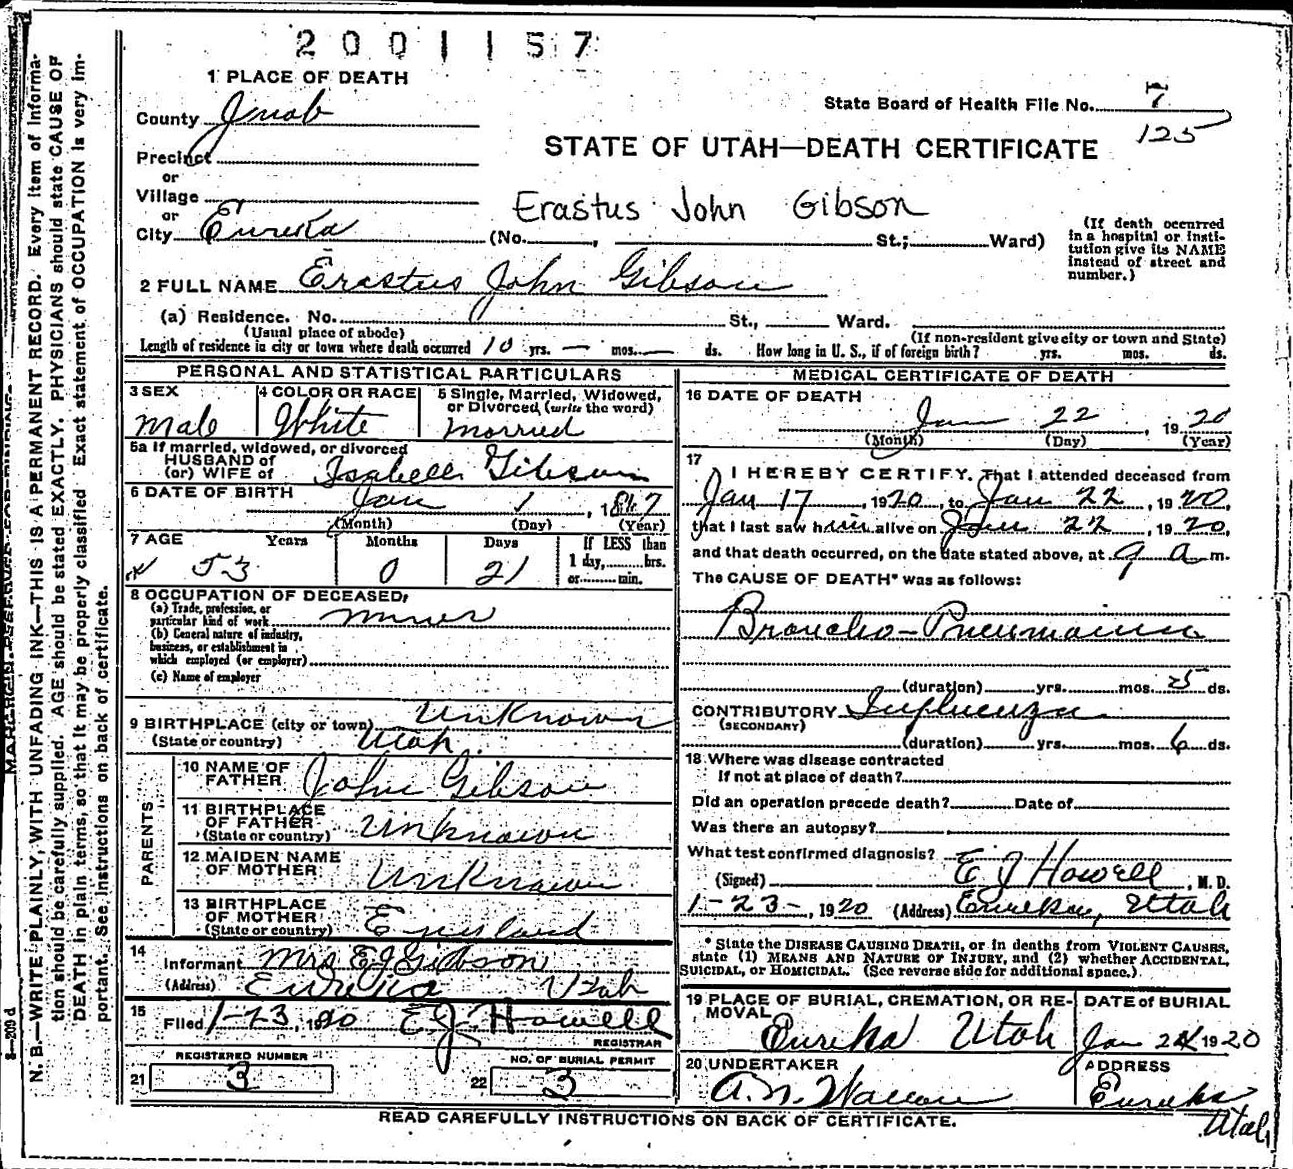 2001157
1 PLACE OF DEATH
County Juab
State Board of Health File No. 7
125
Precinct
or
Village
or
City Eureka
STATE OF UTAH—DEATH CERTIFICATE
Erastus John Gibson
(No. , St.; Ward)
(If death occurred
in a hospital or insti-
tution give its NAME
instead of street and
number.)
2 FULL NAME Erastus John Gibson
(a) Residence. No. St., Ward.
(Usual place of abode) (If non-resident give city or town and State)
Length of residence in city or town where death occurred 10 yrs. — mos. ds. How long in U. S., if of foreign birth? yrs. mos. ds.
PERSONAL AND STATISTICAL PARTICULARS
3 SEX
Male
4 COLOR OR RACE
White
5 Single, Married, Widowed,
or Divorced (write the word)
Married
5a If married, widowed, or divorced
HUSBAND of
(or) WIFE of Isabelle Gibson
6 DATE OF BIRTH Jan 1, 1867
(Month) (Day) (Year)
7 AGE Years Months Days
53 0 21
If LESS than
1 day, hrs.
or min.
8 OCCUPATION OF DECEASED:
(a) Trade, profession, or
particular kind of work miner
(b) General nature of industry,
business, or establishment in
which employed (or employer)
(c) Name of employer
9 BIRTHPLACE (city or town) Unknown
(State or country) Utah
PARENTS
10 NAME OF
FATHER John Gibson
11 BIRTHPLACE
OF FATHER
(State or country) Unknown
12 MAIDEN NAME
OF MOTHER Unknown
13 BIRTHPLACE
OF MOTHER
(State or country) England
14
Informant Mrs E J Gibson
(Address) Eureka Utah
15
Filed 1-23, 1920 E. J. Howell
REGISTRAR
REGISTERED NUMBER
21 3
NO. OF BURIAL PERMIT
22 3
MEDICAL CERTIFICATE OF DEATH
16 DATE OF DEATH
Jan 22, 1920
(Month) (Day) (Year)
17
I HEREBY CERTIFY, That I attended deceased from
Jan 17, 1920, to Jan 22, 1920,
that I last saw him alive on Jan 22, 1920,
and that death occurred, on the date stated above, at 9 a m.
The CAUSE OF DEATH* was as follows:
Broncho-Pneumonia
(duration) yrs. mos. 5 ds.
CONTRIBUTORY Influenza
(SECONDARY)
(duration) yrs. mos. 6 ds.
18 Where was disease contracted
If not at place of death?
Did an operation precede death? Date of
Was there an autopsy?
What test confirmed diagnosis?
(Signed) E J Howell, M. D.
1-23-, 1920 (Address) Eureka, Utah
* State the DISEASE CAUSING DEATH, or in deaths from VIOLENT CAUSES,
state (1) MEANS AND NATURE OF INJURY, and (2) whether ACCIDENTAL,
SUICIDAL, or HOMICIDAL. (See reverse side for additional space.)
19 PLACE OF BURIAL, CREMATION, OR RE-
MOVAL
Eureka Utah
DATE of BURIAL
Jan 24 1920
20 UNDERTAKER
A. N. Wallace
ADDRESS
Eureka
Utah
READ CAREFULLY INSTRUCTIONS ON BACK OF CERTIFICATE.
N. B.—WRITE PLAINLY, WITH UNFADING INK—THIS IS A PERMANENT RECORD. Every item of informa-
tion should be carefully supplied. AGE should be stated EXACTLY. PHYSICIANS should state CAUSE OF
DEATH in plain terms, so that it may be properly classified. Exact statement of OCCUPATION is very im-
portant. See instructions on back of certificate.